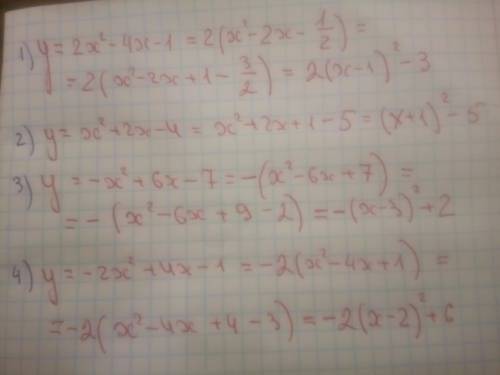 1) y = 2x² - 4x - 1 = 2(x² - 2x - 1/2) =
= 2(x² - 2x + 1 - 3/2) = 2(x - 1)² - 3
2) y = x² + 2x - 4 = x² + 2x + 1 - 5 = (x + 1)² - 5
3) y = -x² + 6x - 7 = -(x² - 6x + 7) =
= -(x² - 6x + 9 - 2) = -(x - 3)² + 2
4) y = -2x² + 4x - 1 = -2(x² - 4x + 1) =
= -2(x² - 4x + 4 - 3) = -2(x - 2)² + 6